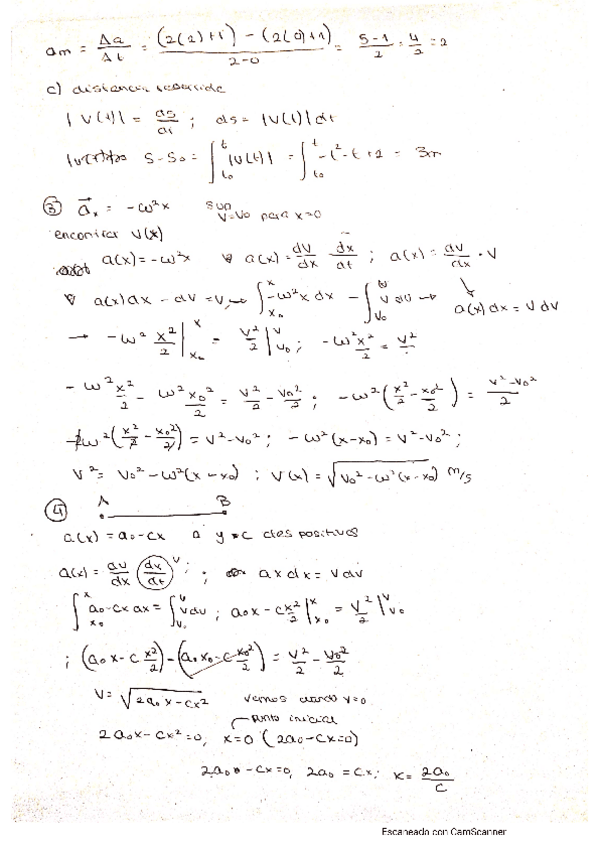 am = Δa/Δt = (2(2)+1) - (2(0)+1)/2-0 = 5-1/2 = 4/2 = 2
c) distancia
|V(t)| = ds/dt ; ds = |V(t)| dt
S-S₀ = ∫ₜ₀ᵗ |V(t)| = ∫ₜ₀ᵗ -t²-t+2 = 3m
③ a⃗ₓ = -ω²x
V=V₀ para x=0
encontrar V(x)
a(x) = -ω²x a(x) = dV/dx dx/dt ; a(x) = dv/dx · V
a(x)dx - dv = V, → ∫ₓ₀ˣ -ω²x dx - ∫ᵥ₀ᵛ V dv → a(x)dx = V dv
→ -ω² x²/2 |ₓ₀ˣ = V²/2 |ᵥ₀ᵛ ; -ω²x²/2 = V²/2
-ω² x²/2 - ω²x₀²/2 = V²/2 - V₀²/2 ; -ω² (x²/2 - x₀²/2) = V²-V₀²/2
-2ω² (x²/2 - x₀²/2) = V²-V₀² ; -ω²(x-x₀) = V²-V₀² ;
V² = V₀² - ω²(x-x₀) ; V(x) = √V₀²-ω²(x-x₀) m/s
④ A B
a(x) = a₀-cx a y c ctes positivos
a(x) = dv/dx dx/dt V ; ax dx = V dv
∫ₓ₀ˣ a₀-cx dx = ∫ᵥ₀ᵛ V dv ; a₀x - cx²/2 |ₓ₀ˣ = V²/2 |ᵥ₀ᵛ
; (a₀x - c x²/2) - (a₀x₀ - c x₀²/2) = V²/2 - V₀²/2
V = √2a₀x-cx² vemos cuando V=0
punto inicial
2a₀x-cx²=0, x=0 (2a₀-cx=0)
2a₀-cx=0, 2a₀=cx; x= 2a₀/c
Escaneado con CamScanner